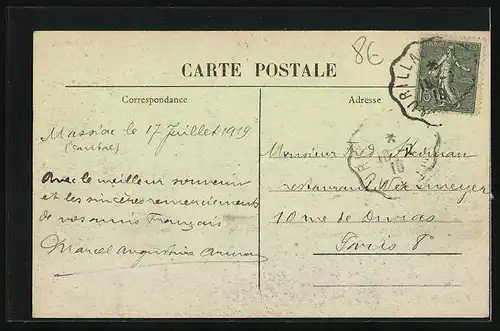 8€
CARTE POSTALE
Correspondance
Adresse
AURILLA
15
Massiac le 17 Juillet 1919
(Cantal)
Avec le meilleur souvenir
et les sincères remerciements
de vos amis Français
Marcel Augustine
Monsieur Fred
restaurant
10 rue de
Paris 8e